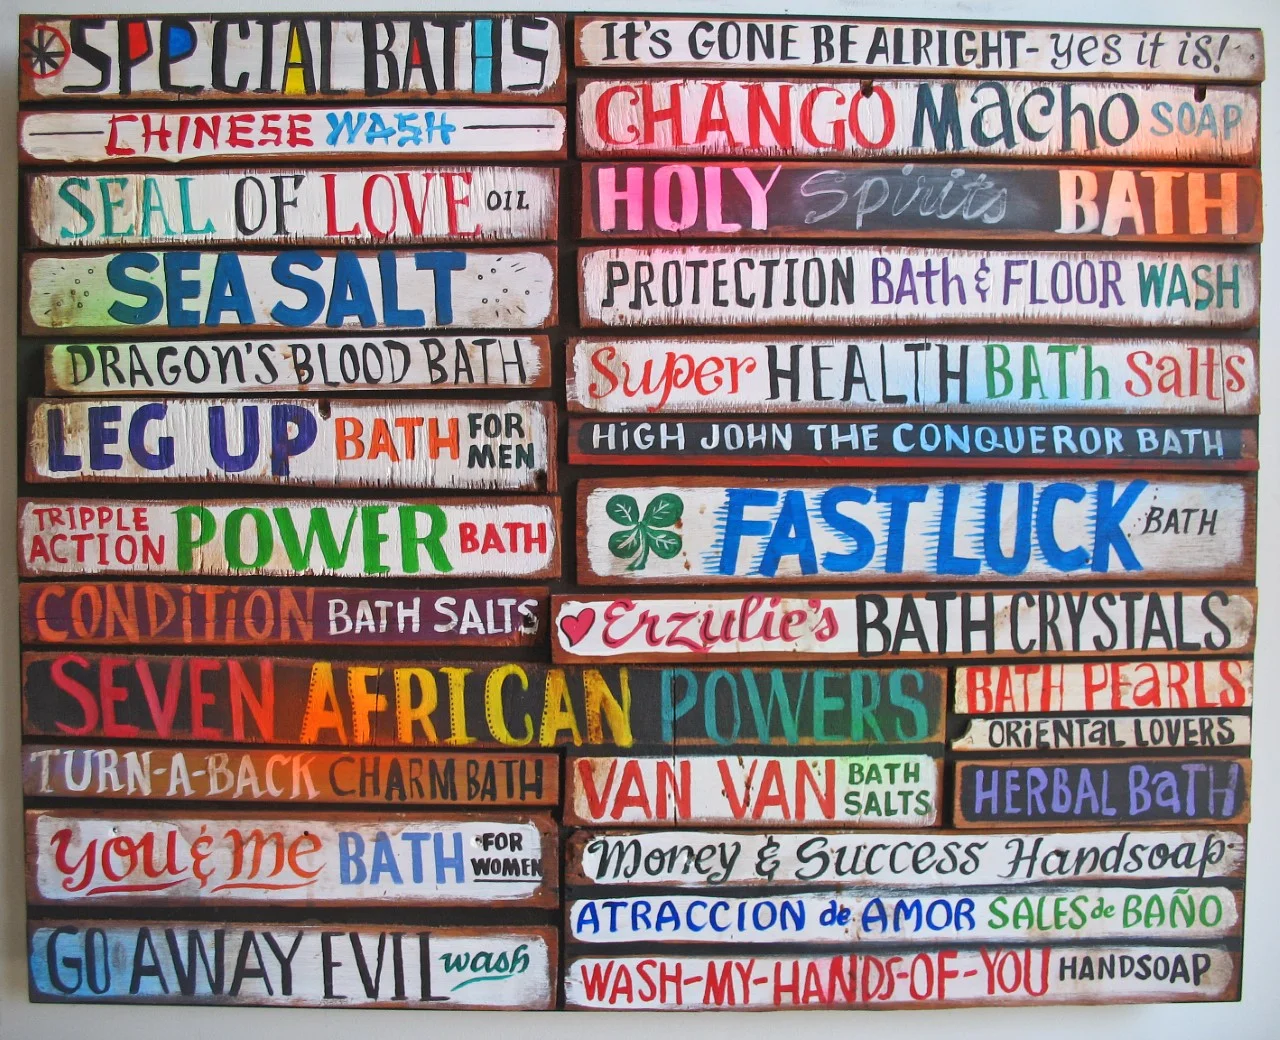 SPECIAL BATHS
CHINESE WASH
SEAL OF LOVE OIL
SEA SALT
DRAGON'S BLOOD BATH
LEG UP BATH FOR MEN
TRIPPLE ACTION POWER BATH
CONDITION BATH SALTS
SEVEN AFRICAN POWERS
TURN-A-BACK CHARM BATH
YOU & me BATH FOR WOMEN
GO AWAY EVIL wash
It's GONE BE ALRIGHT- yes it is!
CHANGO Macho SOAP
HOLY Spirits BATH
PROTECTION BAth & FLOOR WASH
Super HEALTH BATh Salts
HiGH JOHN THE CONQUEROR BATH
FAST LUCK BATH
Erzulie's BATH CRYSTALS
BATH PEaRLS
ORiENTaL LOVERS
VAN VAN BATH SALTS
HERBAL BaTH
Money & Success Handsoap
ATRACCION de AMOR SALES de BAÑO
WASH-MY-HANDS-OF-YOU HANDSOAP